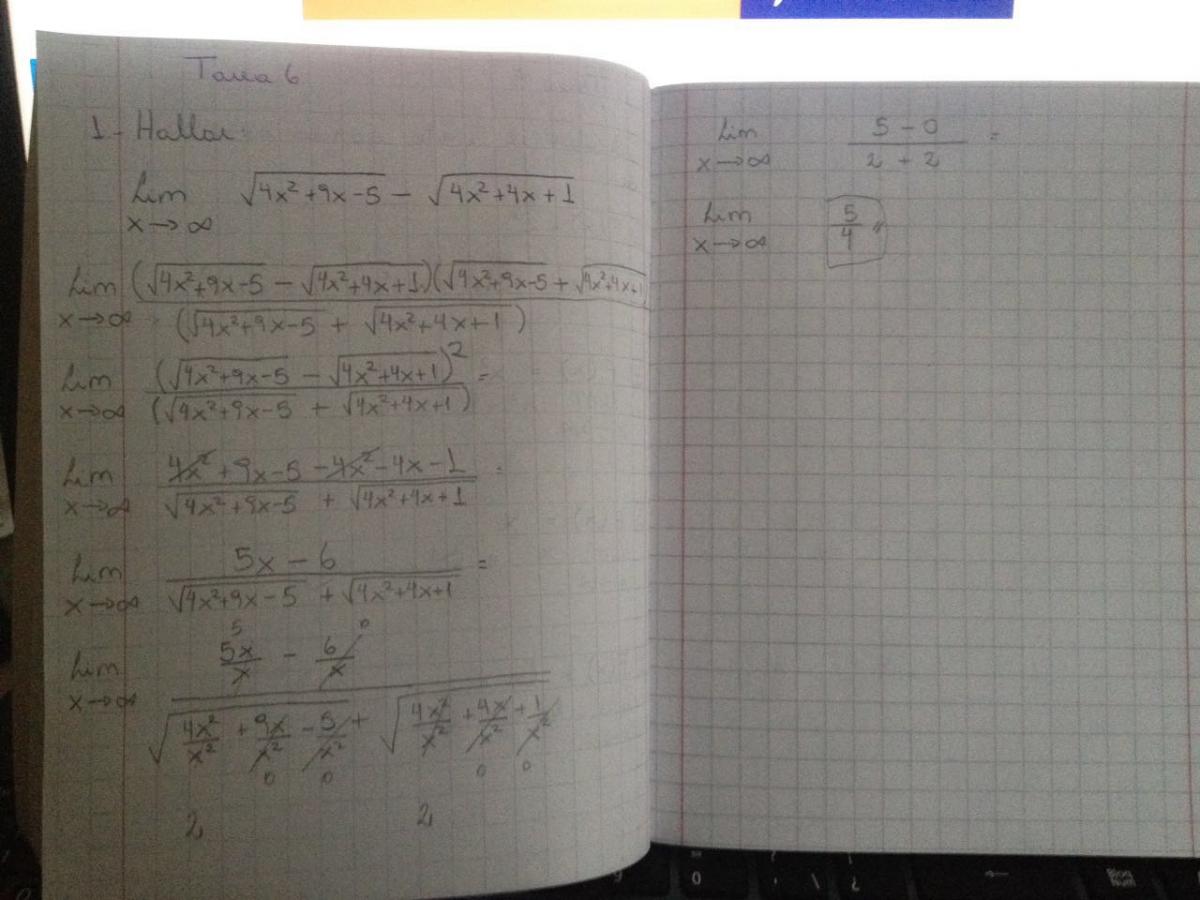 Tarea 6
1- Hallar:
Lim x→∞ √(4x²+9x-5) - √(4x²+4x+1)
Lim x→∞ (√(4x²+9x-5) - √(4x²+4x+1))(√(4x²+9x-5) + √(4x²+4x+1)) / (√(4x²+9x-5) + √(4x²+4x+1))
Lim x→∞ (√(4x²+9x-5) - √(4x²+4x+1))² / (√(4x²+9x-5) + √(4x²+4x+1)) =
Lim x→∞ (4x²+9x-5-4x²-4x-1) / (√(4x²+9x-5) + √(4x²+4x+1)) =
Lim x→∞ (5x-6) / (√(4x²+9x-5) + √(4x²+4x+1)) =
5 0
Lim x→∞ (5x/x - 6/x) / (√(4x²/x² + 9x/x² - 5/x²) + √(4x²/x² + 4x/x² + 1/x²))
0 0 0 0
2 2
Lim x→∞ (5-0) / (2+2) =
Lim x→∞ 5/4 //